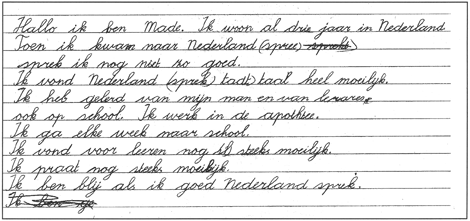 Hallo ik ben Made. Ik woon al drie jaar in Nederland
Toen ik kwam naar Nederland (spree)
sprek ik nog niet zo goed.
Ik vond Nederland (sprek) tadt) taal heel moeilyk.
Ik heb gelerd van mijn man en van
ook op school. Ik werk in de apothee.
Ik ga elke week naar school.
Ik vond voor leeren nog steeks moeilyk.
Ik praat nog steeks moeilyk.
Ik ben blij als ik goed Nederland sprek.
Ik ben